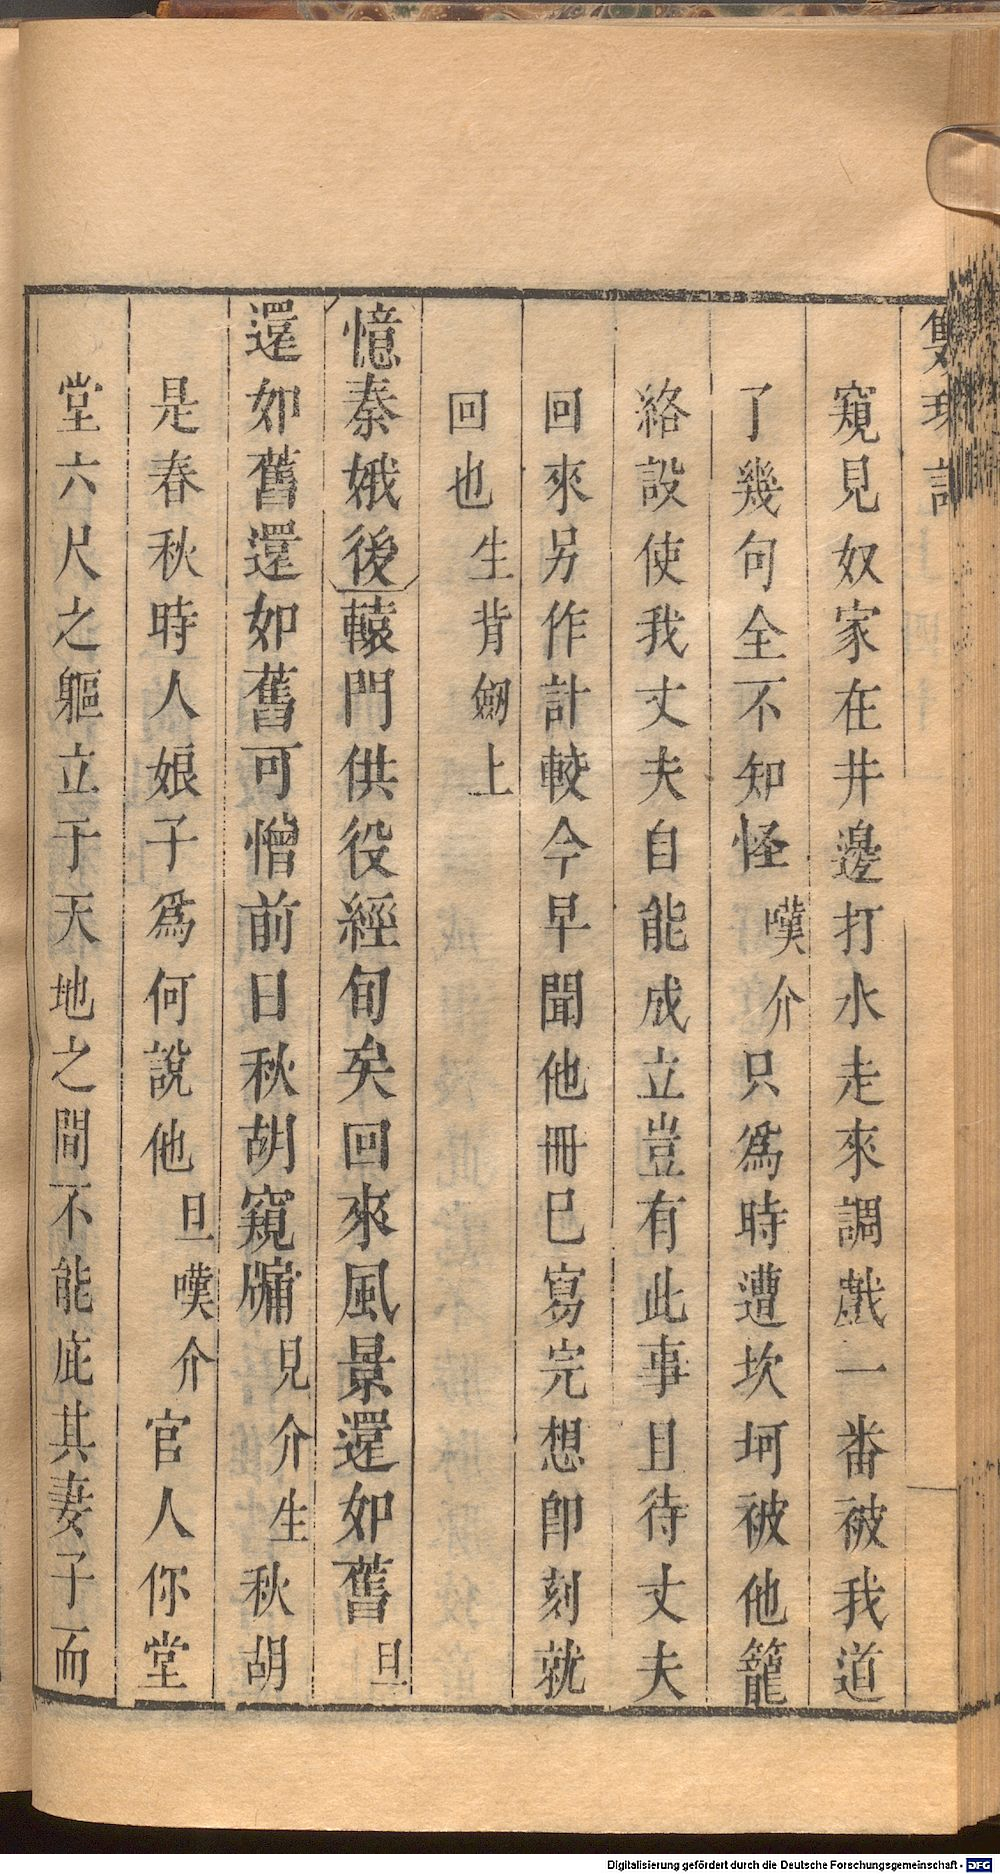 雙珠記
窺見奴家在井邊打水走來調戲一番被我道
了幾句全不知怪嘆介只爲時遭坎坷被他籠
絡設使我丈夫自能成立豈有此事且待丈夫
回來另作計較今早聞他冊巳寫完想卽刻就
回也生背劒上
憶秦娥後轅門供役經旬矣回來風景還如舊旦
還如舊還如舊可憎前日秋胡窺牖見介生秋胡
是春秋時人娘子爲何說他旦嘆介官人你堂
堂六尺之軀立于天地之間不能庇其妻子而
Digitalisierung gefördert durch die Deutsche Forschungsgemeinschaft - DFG